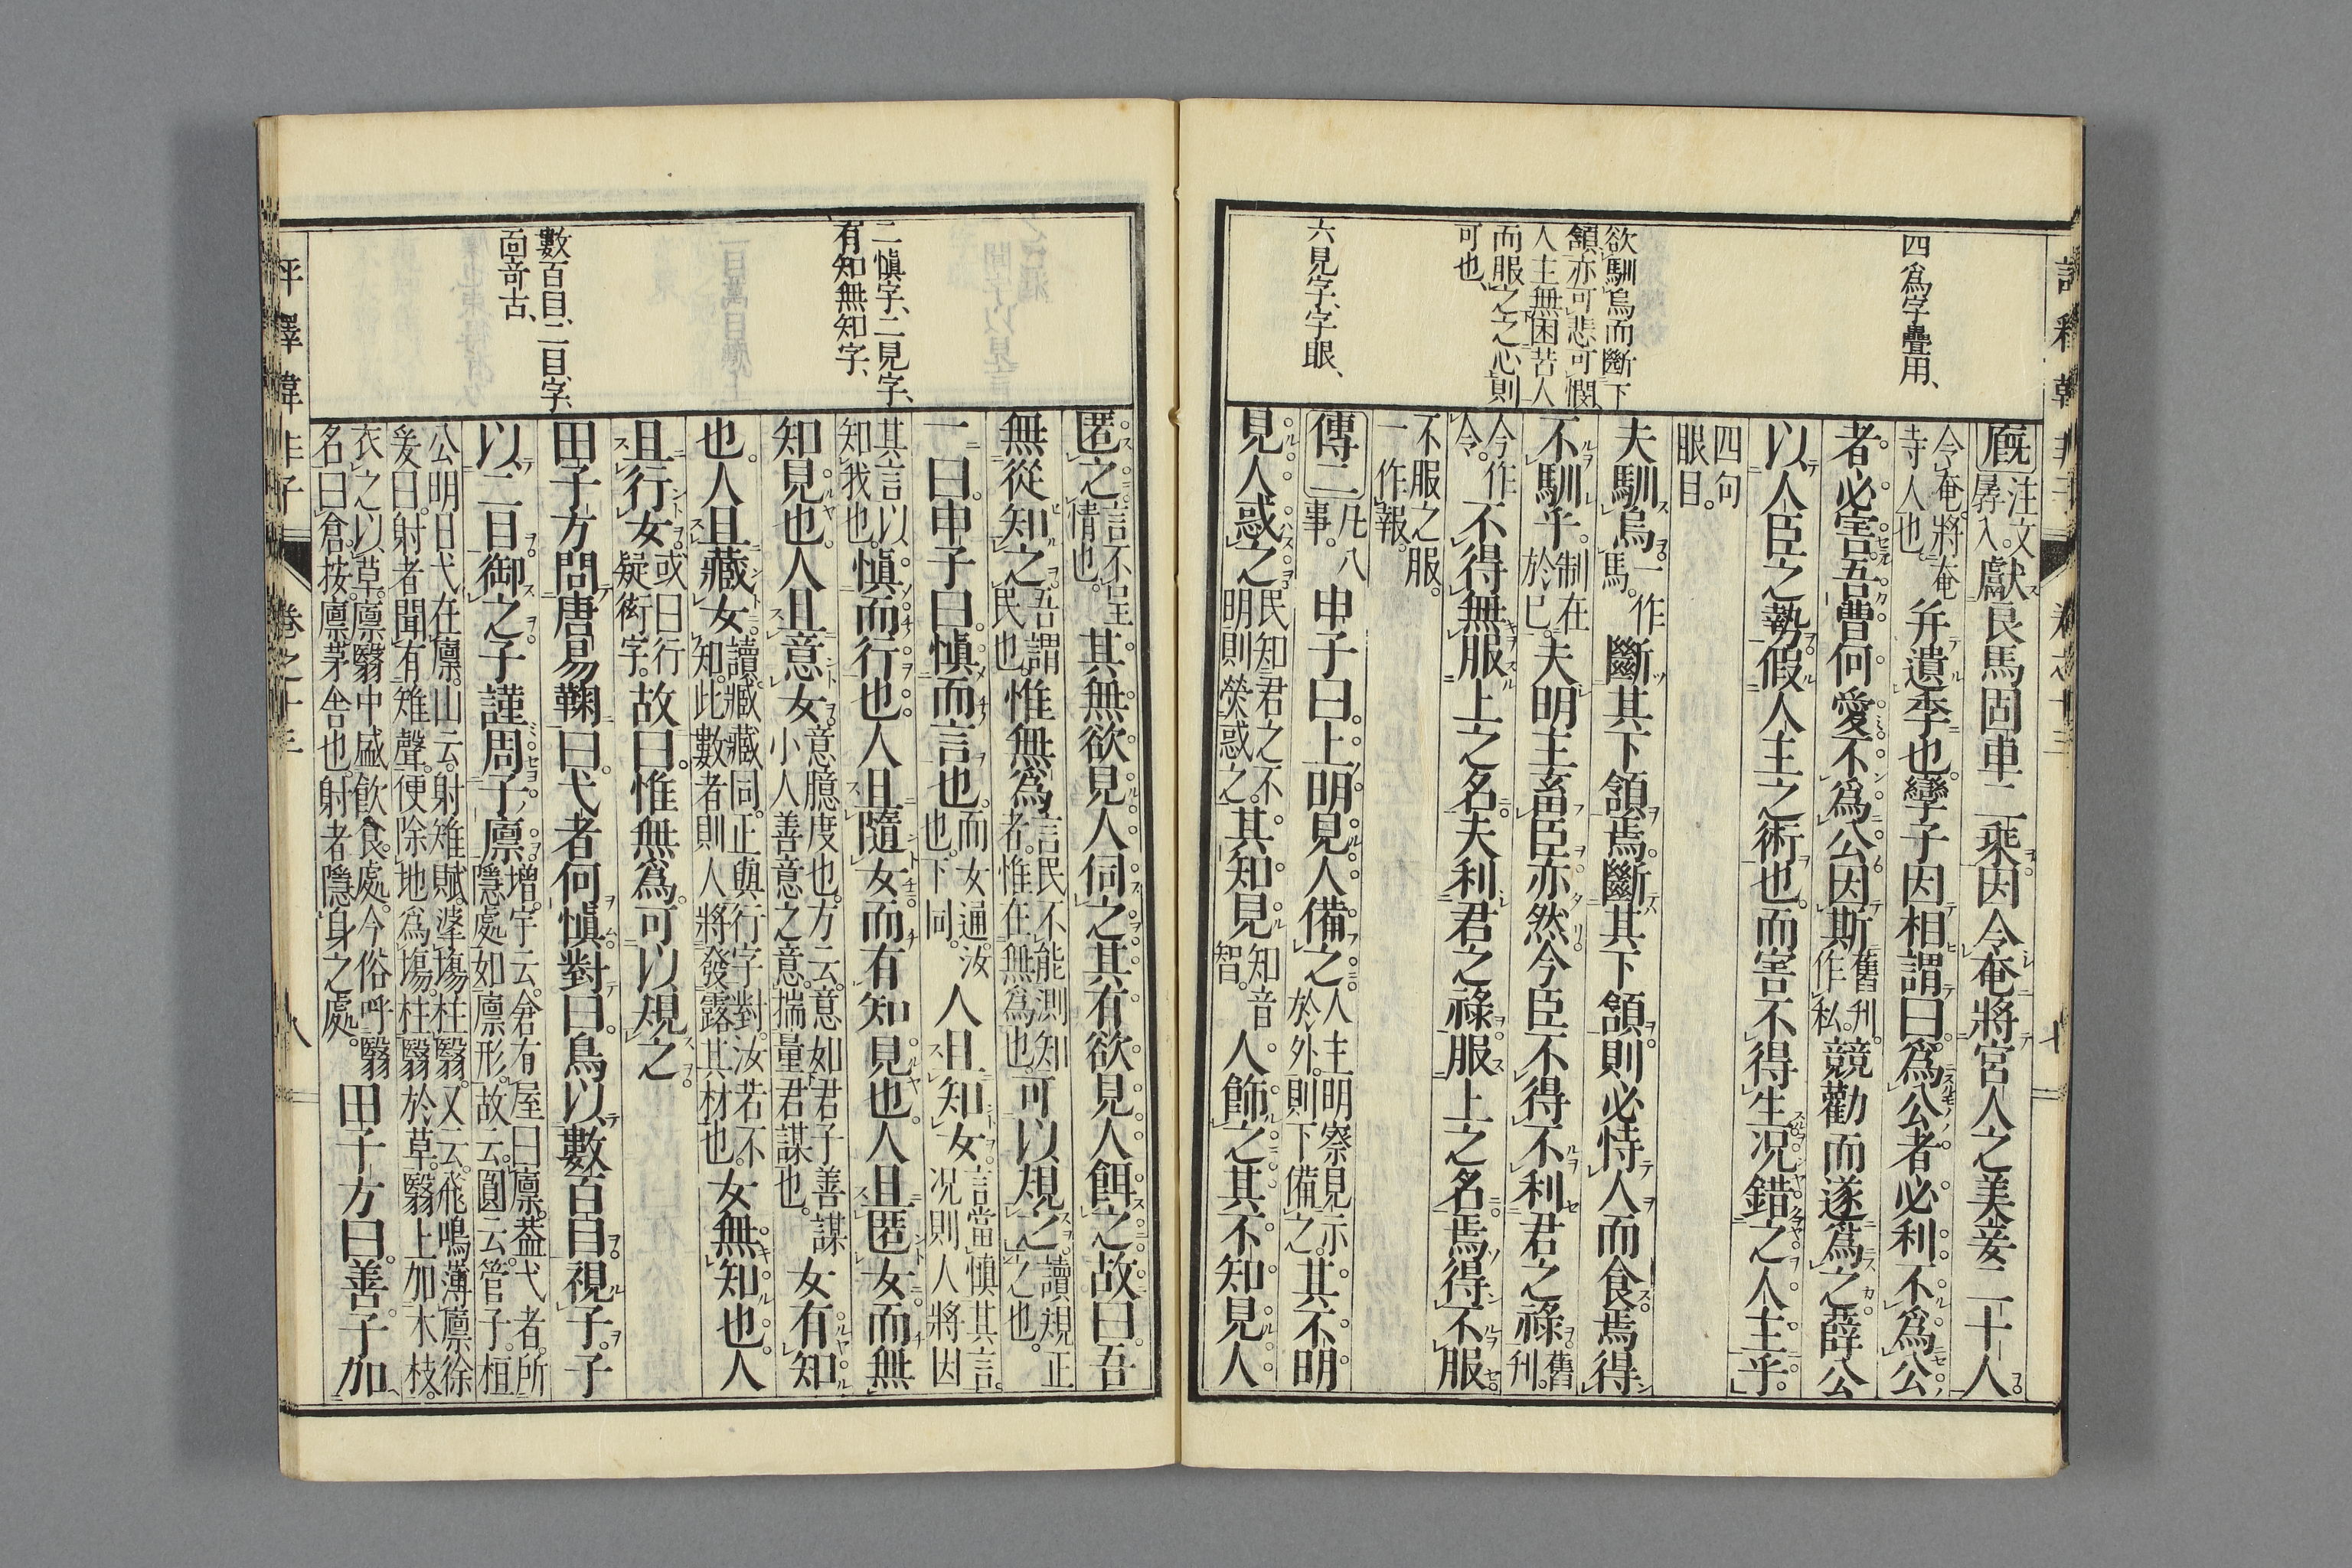 四爲字疊用、
欲馴烏而斷下
頷、亦可悲可憫、
人主無困苦人
而服之之心、則
可也、
六見字、字眼、
廐注文㝵入。獻良馬固車二乘。因令奄將宮人之美妾二十人。
令奄。將奄寺人也幷遺季也。孿子因相謂曰。爲公者必利。不爲公
者。必害吾曹。何愛不爲公。因斯舊刋作私。競勸而遂爲之。薛公
以人臣之勢。假人主之術也。而害不得生。况錯之人主乎。
四句眼目。
夫馴烏。一作馬。斷其下頷焉。斷其下頷。則必恃人而食。焉得
不馴乎。制在於已。夫明主畜臣亦然。今臣不得不利君之祿。舊刋
今作令。不得無服上之名。夫利君之祿。服上之名。焉得不服
不服之服。一作報。
傳二凡八事。申子曰。上明見人備之。人主明察見示於外。則下備之。其不明
見人惑之。民知君之不明則熒惑之。其知見知音智。人飾之。其不知見人
二愼字、二見字、
有知無知字、
數百目、二目字、
靣竒古、
匿之。言不呈情也。其無欲見人伺之。其有欲見人餌之。故曰。吾
無從知之。吾謂民也。惟無爲言民不能測知者。惟在無爲也。可以規之。讀規正之也。
一曰。申子曰。愼而言也。而女通。汝也。下同。人且知女。言當愼其言。况則人將因
其言以知我也。愼而行也。人且隨女。而有知見也。人且匿女。而無
知見也。人且意女。意臆度也。方云。意如君子善謀小人善意之意。揣量君謀也。女有知
也。人且藏女。讀臧藏同。正與行字對。汝若不知。此數者則人將發露其材也。女無知也。人
且行女。或曰行疑衒字。故曰。惟無爲。可以規之。
田子方問唐易鞠曰。弋者何愼。對曰。鳥以數百目視子。子
以二目御之。子謹周子廩。增。宇云。倉有屋曰廩。葢弋者。所隱處如廩形。故云。圓云。管子。桓
公明日弋在廩。山云。射雉賦。㨇塲柱翳。又云。飛鳴薄廩。徐爰曰。射者聞有雉聲。便除地爲塲。柱翳於草。翳上加木枝。
衣之以草。廩翳中盛飮食。處。今俗呼翳名曰倉。按。廩茅舍也。射者隱身之處。田子方曰。善。子加
評釋韓非子
卷之十三
八